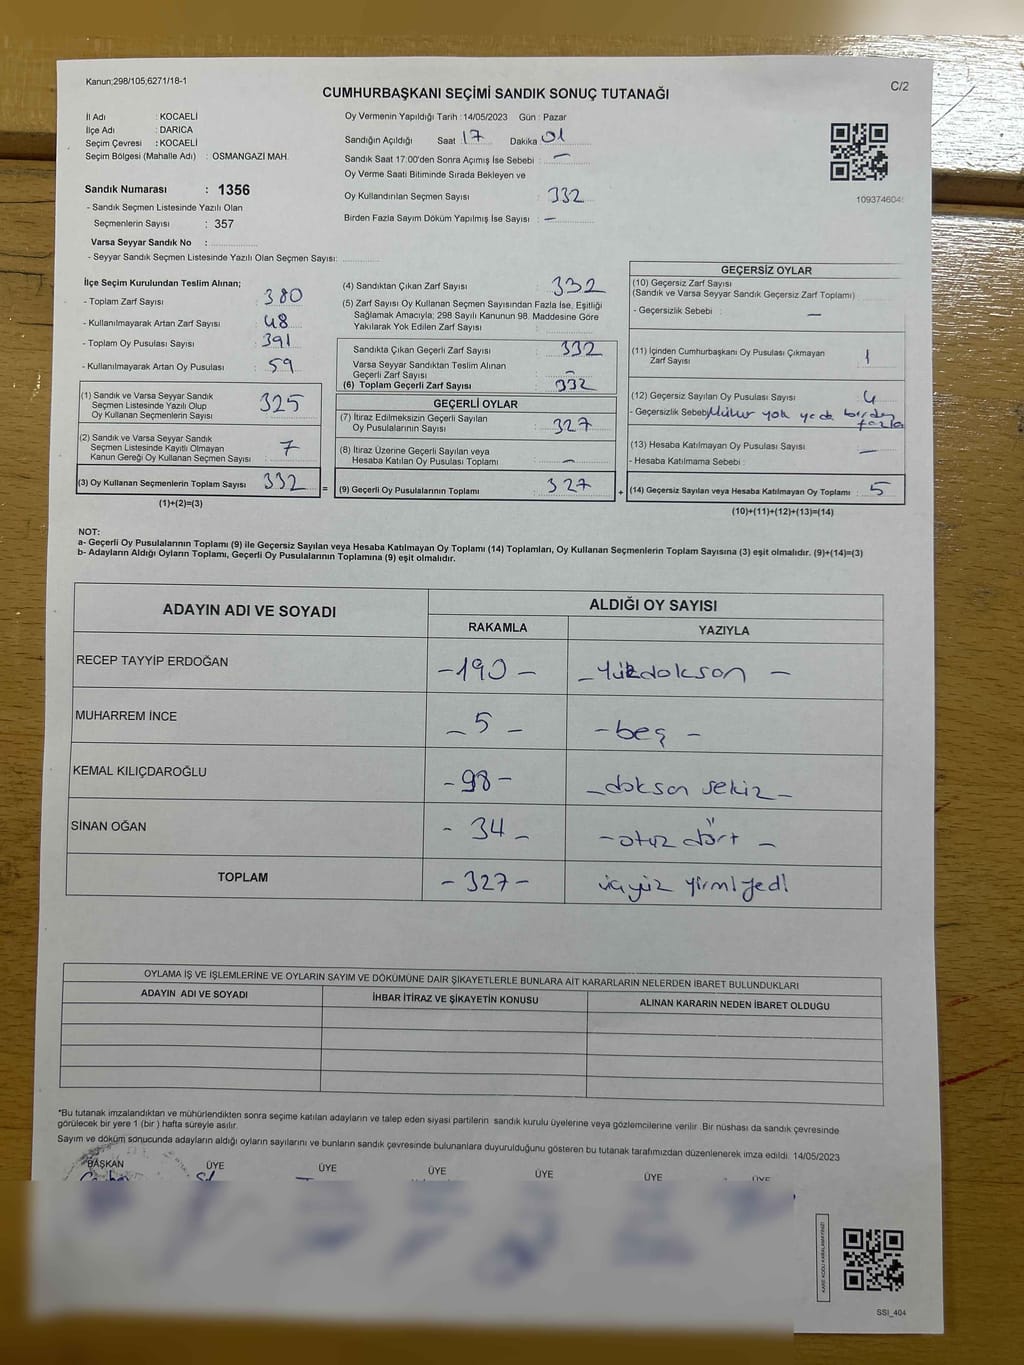 Kanun;298/105,6271/18-1
C/2
CUMHURBAŞKANI SEÇİMİ SANDIK SONUÇ TUTANAĞI
İl Adı : KOCAELİ
İlçe Adı : DARICA
Seçim Çevresi : KOCAELİ
Seçim Bölgesi (Mahalle Adı) : OSMANGAZİ MAH.
Sandık Numarası : 1356
- Sandık Seçmen Listesinde Yazılı Olan
Seçmenlerin Sayısı : 357
Varsa Seyyar Sandık No :
- Seyyar Sandık Seçmen Listesinde Yazılı Olan Seçmen Sayısı:
Oy Vermenin Yapıldığı Tarih : 14/05/2023 Gün : Pazar
Sandığın Açıldığı Saat : 17 Dakika 01
Sandık Saat 17:00'den Sonra Açımış İse Sebebi : –
Oy Verme Saati Bitiminde Sırada Bekleyen ve
Oy Kullandırılan Seçmen Sayısı : 332
Birden Fazla Sayım Döküm Yapılmış İse Sayısı : –
109374604
İlçe Seçim Kurulundan Teslim Alınan;
- Toplam Zarf Sayısı : 380
- Kullanılmayarak Artan Zarf Sayısı : 48
- Toplam Oy Pusulası Sayısı : 391
- Kullanılmayarak Artan Oy Pusulası : 59
(1) Sandık ve Varsa Seyyar Sandık
Seçmen Listesinde Yazılı Olup
Oy Kullanan Seçmenlerin Sayısı : 325
(2) Sandık ve Varsa Seyyar Sandık
Seçmen Listesinde Kayıtlı Olmayan
Kanun Gereği Oy Kullanan Seçmen Sayısı : 7
(3) Oy Kullanan Seçmenlerin Toplam Sayısı : 332
(1)+(2)=(3)
(4) Sandıktan Çıkan Zarf Sayısı : 332
(5) Zarf Sayısı Oy Kullanan Seçmen Sayısından Fazla İse, Eşitliği
Sağlamak Amacıyla; 298 Sayılı Kanunun 98. Maddesine Göre
Yakılarak Yok Edilen Zarf Sayısı :
Sandıkta Çıkan Geçerli Zarf Sayısı : 332
Varsa Seyyar Sandıktan Teslim Alınan
Geçerli Zarf Sayısı : –
(6) Toplam Geçerli Zarf Sayısı : 332
GEÇERLİ OYLAR
(7) İtiraz Edilmeksizin Geçerli Sayılan
Oy Pusulalarının Sayısı : 327
(8) İtiraz Üzerine Geçerli Sayılan veya
Hesaba Katılan Oy Pusulası Toplamı : –
= (9) Geçerli Oy Pusulalarının Toplamı : 327
GEÇERSİZ OYLAR
(10) Geçersiz Zarf Sayısı
(Sandık ve Varsa Seyyar Sandık Geçersiz Zarf Toplamı)
- Geçersizlik Sebebi : –
(11) İçinden Cumhurbaşkanı Oy Pusulası Çıkmayan
Zarf Sayısı : 1
(12) Geçersiz Sayılan Oy Pusulası Sayısı : 4
- Geçersizlik Sebebi Mühür yok yada birden
fazla
(13) Hesaba Katılmayan Oy Pusulası Sayısı : –
- Hesaba Katılmama Sebebi :
+ (14) Geçersiz Sayılan veya Hesaba Katılmayan Oy Toplamı : 5
(10)+(11)+(12)+(13)=(14)
NOT:
a- Geçerli Oy Pusulalarının Toplamı (9) ile Geçersiz Sayılan veya Hesaba Katılmayan Oy Toplamı (14) Toplamları, Oy Kullanan Seçmenlerin Toplam Sayısına (3) eşit olmalıdır. (9)+(14)=(3)
b- Adayların Aldığı Oyların Toplamı, Geçerli Oy Pusulalarının Toplamına (9) eşit olmalıdır.
ADAYIN ADI VE SOYADI
ALDIĞI OY SAYISI
RAKAMLA YAZIYLA
RECEP TAYYİP ERDOĞAN – 190 – – Yüzdokson –
MUHARREM İNCE – 5 – – beş –
KEMAL KILIÇDAROĞLU – 98 – – doksan sekiz –
SİNAN OĞAN – 34 – – otuz dört –
TOPLAM – 327 – üçyüz yirmiyedi
OYLAMA İŞ VE İŞLEMLERİNE VE OYLARIN SAYIM VE DÖKÜMÜNE DAİR ŞİKAYETLERLE BUNLARA AİT KARARLARIN NELERDEN İBARET BULUNDUKLARI
ADAYIN ADI VE SOYADI İHBAR İTİRAZ VE ŞİKAYETİN KONUSU ALINAN KARARIN NEDEN İBARET OLDUĞU
*Bu tutanak imzalandıktan ve mühürlendikten sonra seçime katılan adayların ve talep eden siyasi partilerin sandık kurulu üyelerine veya gözlemcilerine verilir. Bir nüshası da sandık çevresinde
görülecek bir yere 1 (bir ) hafta süreyle asılır.
Sayım ve döküm sonucunda adayların aldığı oyların sayılarını ve bunların sandık çevresinde bulunanlara duyurulduğunu gösteren bu tutanak tarafımızdan düzenlenerek imza edildi. 14/05/2023
BAŞKAN ÜYE ÜYE ÜYE ÜYE ÜYE ÜYE
KARE KODU KARALAMAYINIZ!
SSI_404